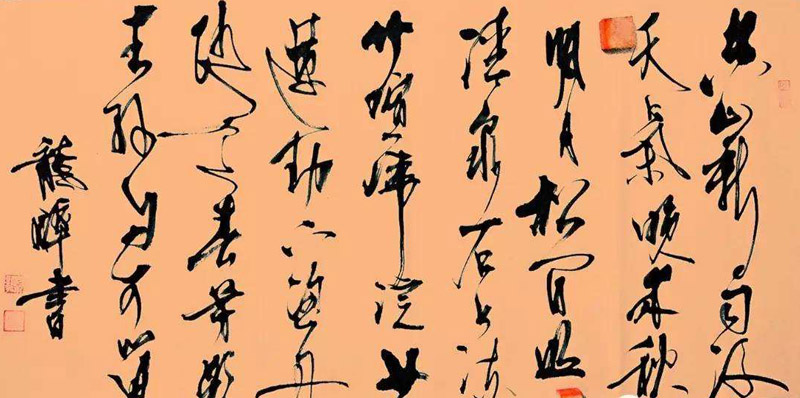 空山新雨後
天氣晚來秋
明月松間照
清泉石上流
竹喧歸浣女
蓮動下漁舟
随意春芳歇
王孫自可留
書